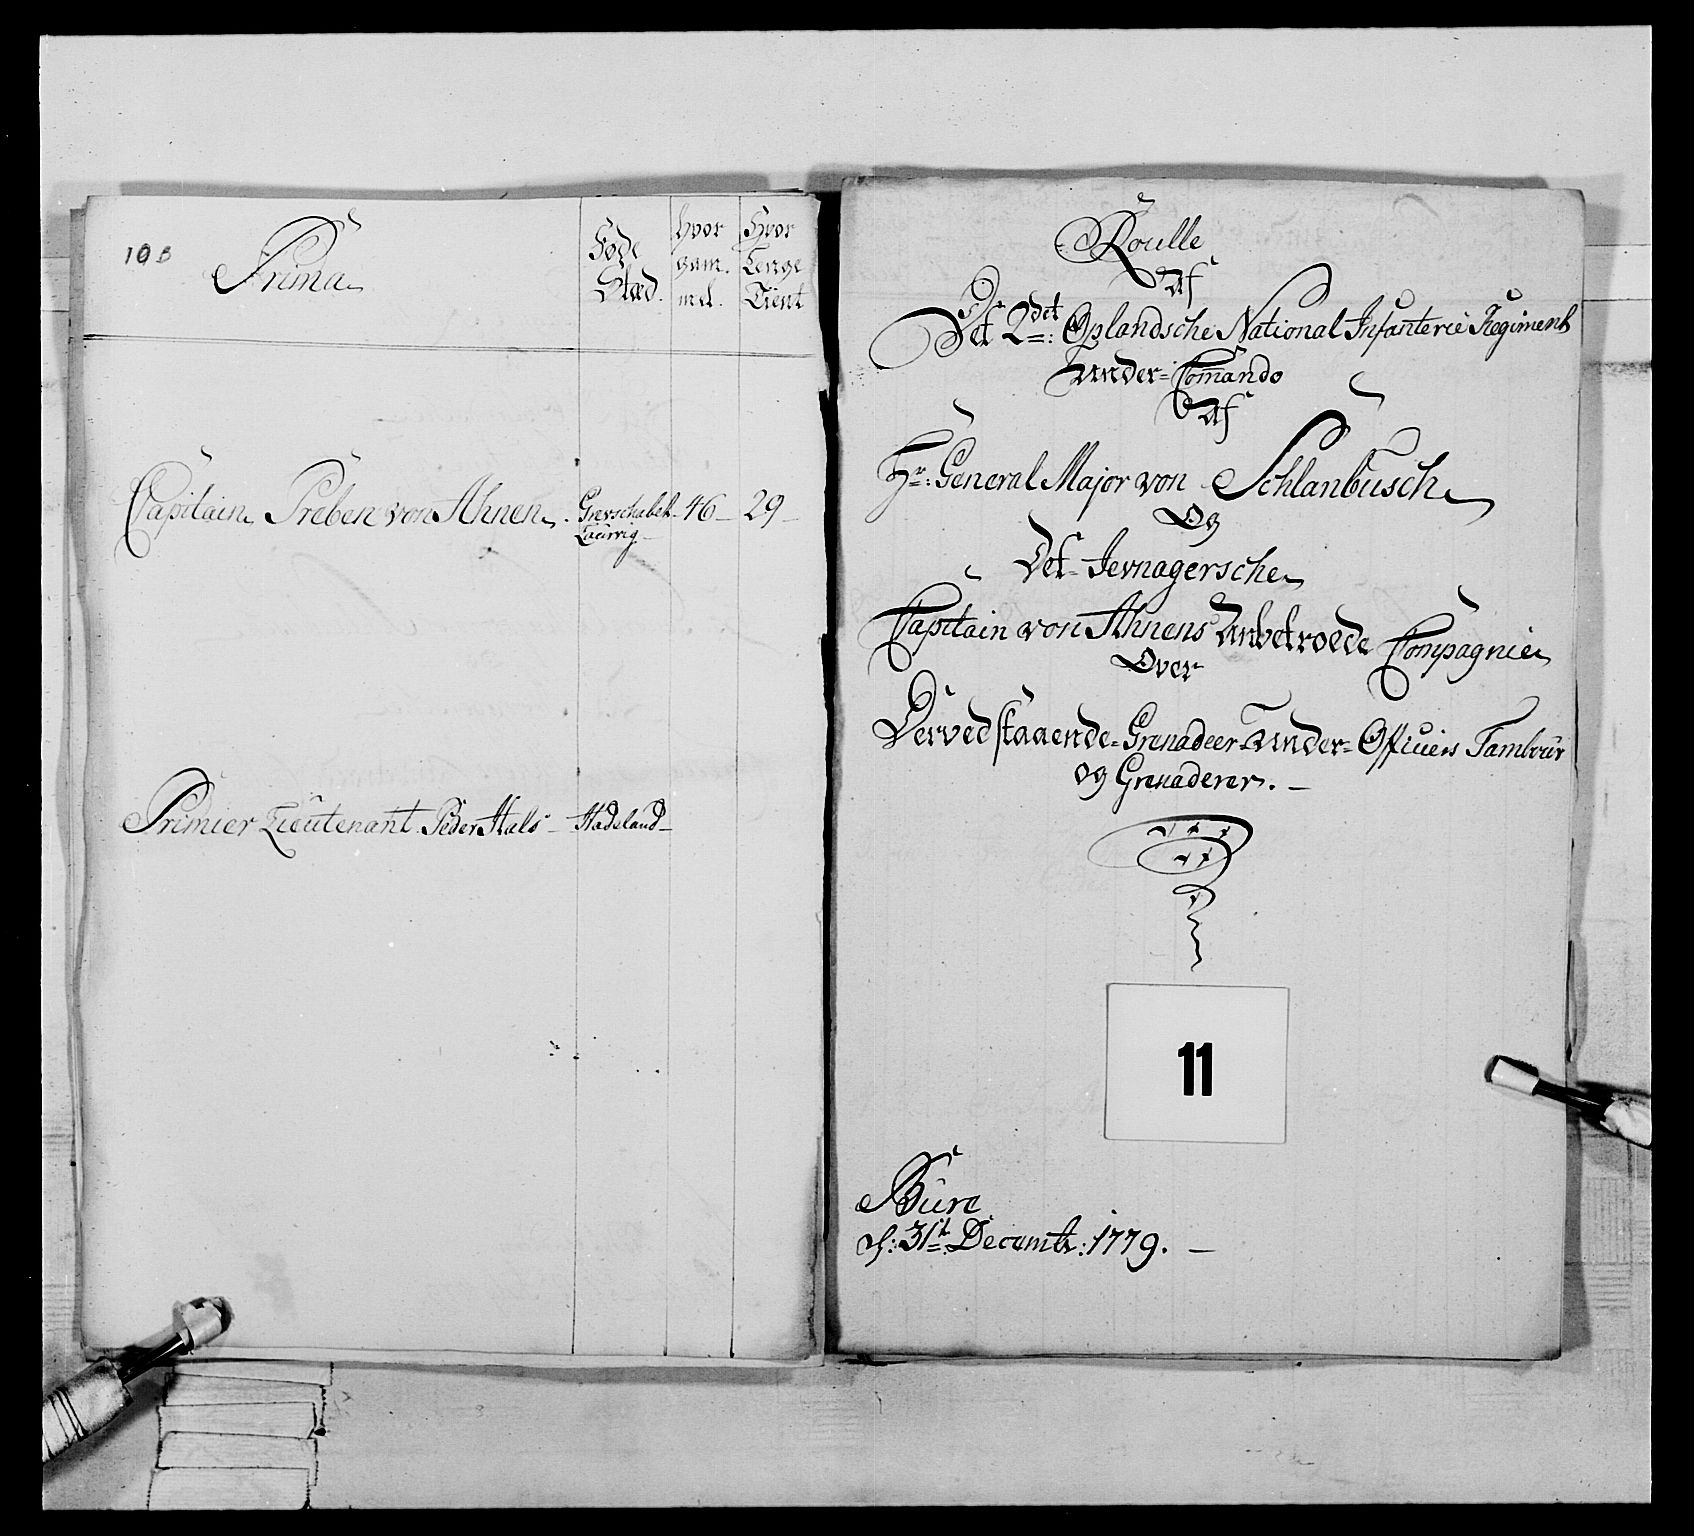 108
Prima
Føde
Stæd.
hvor
gam.
mel.
Hvor
Lenge
Tient
Capitain Preben von Ahnen. Grevschabet 46 29
Laurvig
Premier Lieutenant Peder Hals Hadeland
Roulle
Af
Det 2det: Oplandsche National Infanterie Regiment
Under Comando
Af
Hr: General Major von Schlanbusch
Og
Det Jevnagersche
Capitain von Ahnens Anbetroede Compagnie
Over
Derved staaende Grenadeer Under Officiers Tambour
og Grenaderer.
11
Bure
d: 31t: Decembr: 1779.